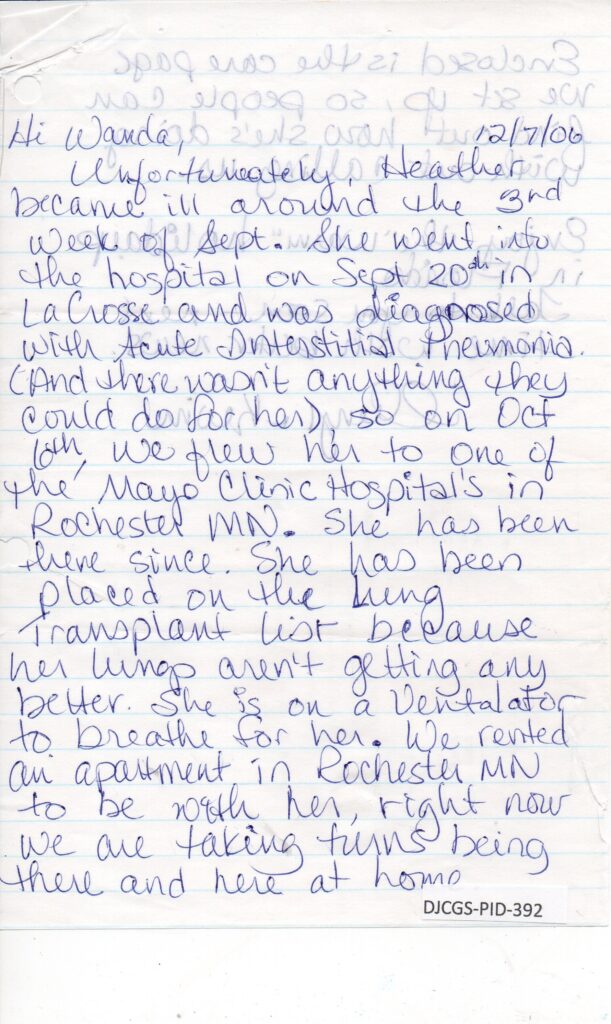 Hi Wanda, 12/7/06
Unfortunately, Heather
became ill around the 3rd
week of Sept. She went into
the hospital on Sept 20th in
LaCrosse and was diagonosed
with Acute Interstitial Pneumonia.
(And there wasn't anything they
could do for her), so on Oct
6th, we flew her to one of
the Mayo Clinic Hospital's in
Rochester MN. She has been
there since. She has been
placed on the Lung
Transplant list because
her lungs aren't getting any
better. She is on a Ventalator
to breathe for her. We rented
an apartment in Rochester MN
to be with her, right now
we are taking turns being
there and here at home
DJCGS-PID-392